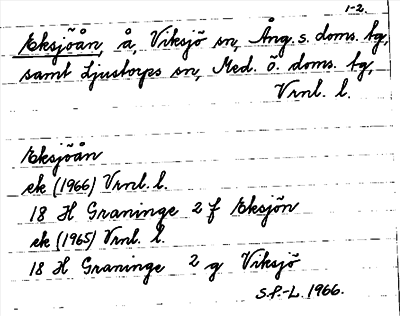 1-2.
Eksjöån, å, Viksjö sn, Ång. s. doms. fg,
samt Ljustorps sn, Med. ö. doms. fg,
Vrnl. l.
Eksjöån
ek (1966) Vrnl. l.
18 H Graninge 2 f Eksjön
ek (1965) Vrnl. l.
18 H Graninge 2 g Viksjö
S.P.-L. 1966.